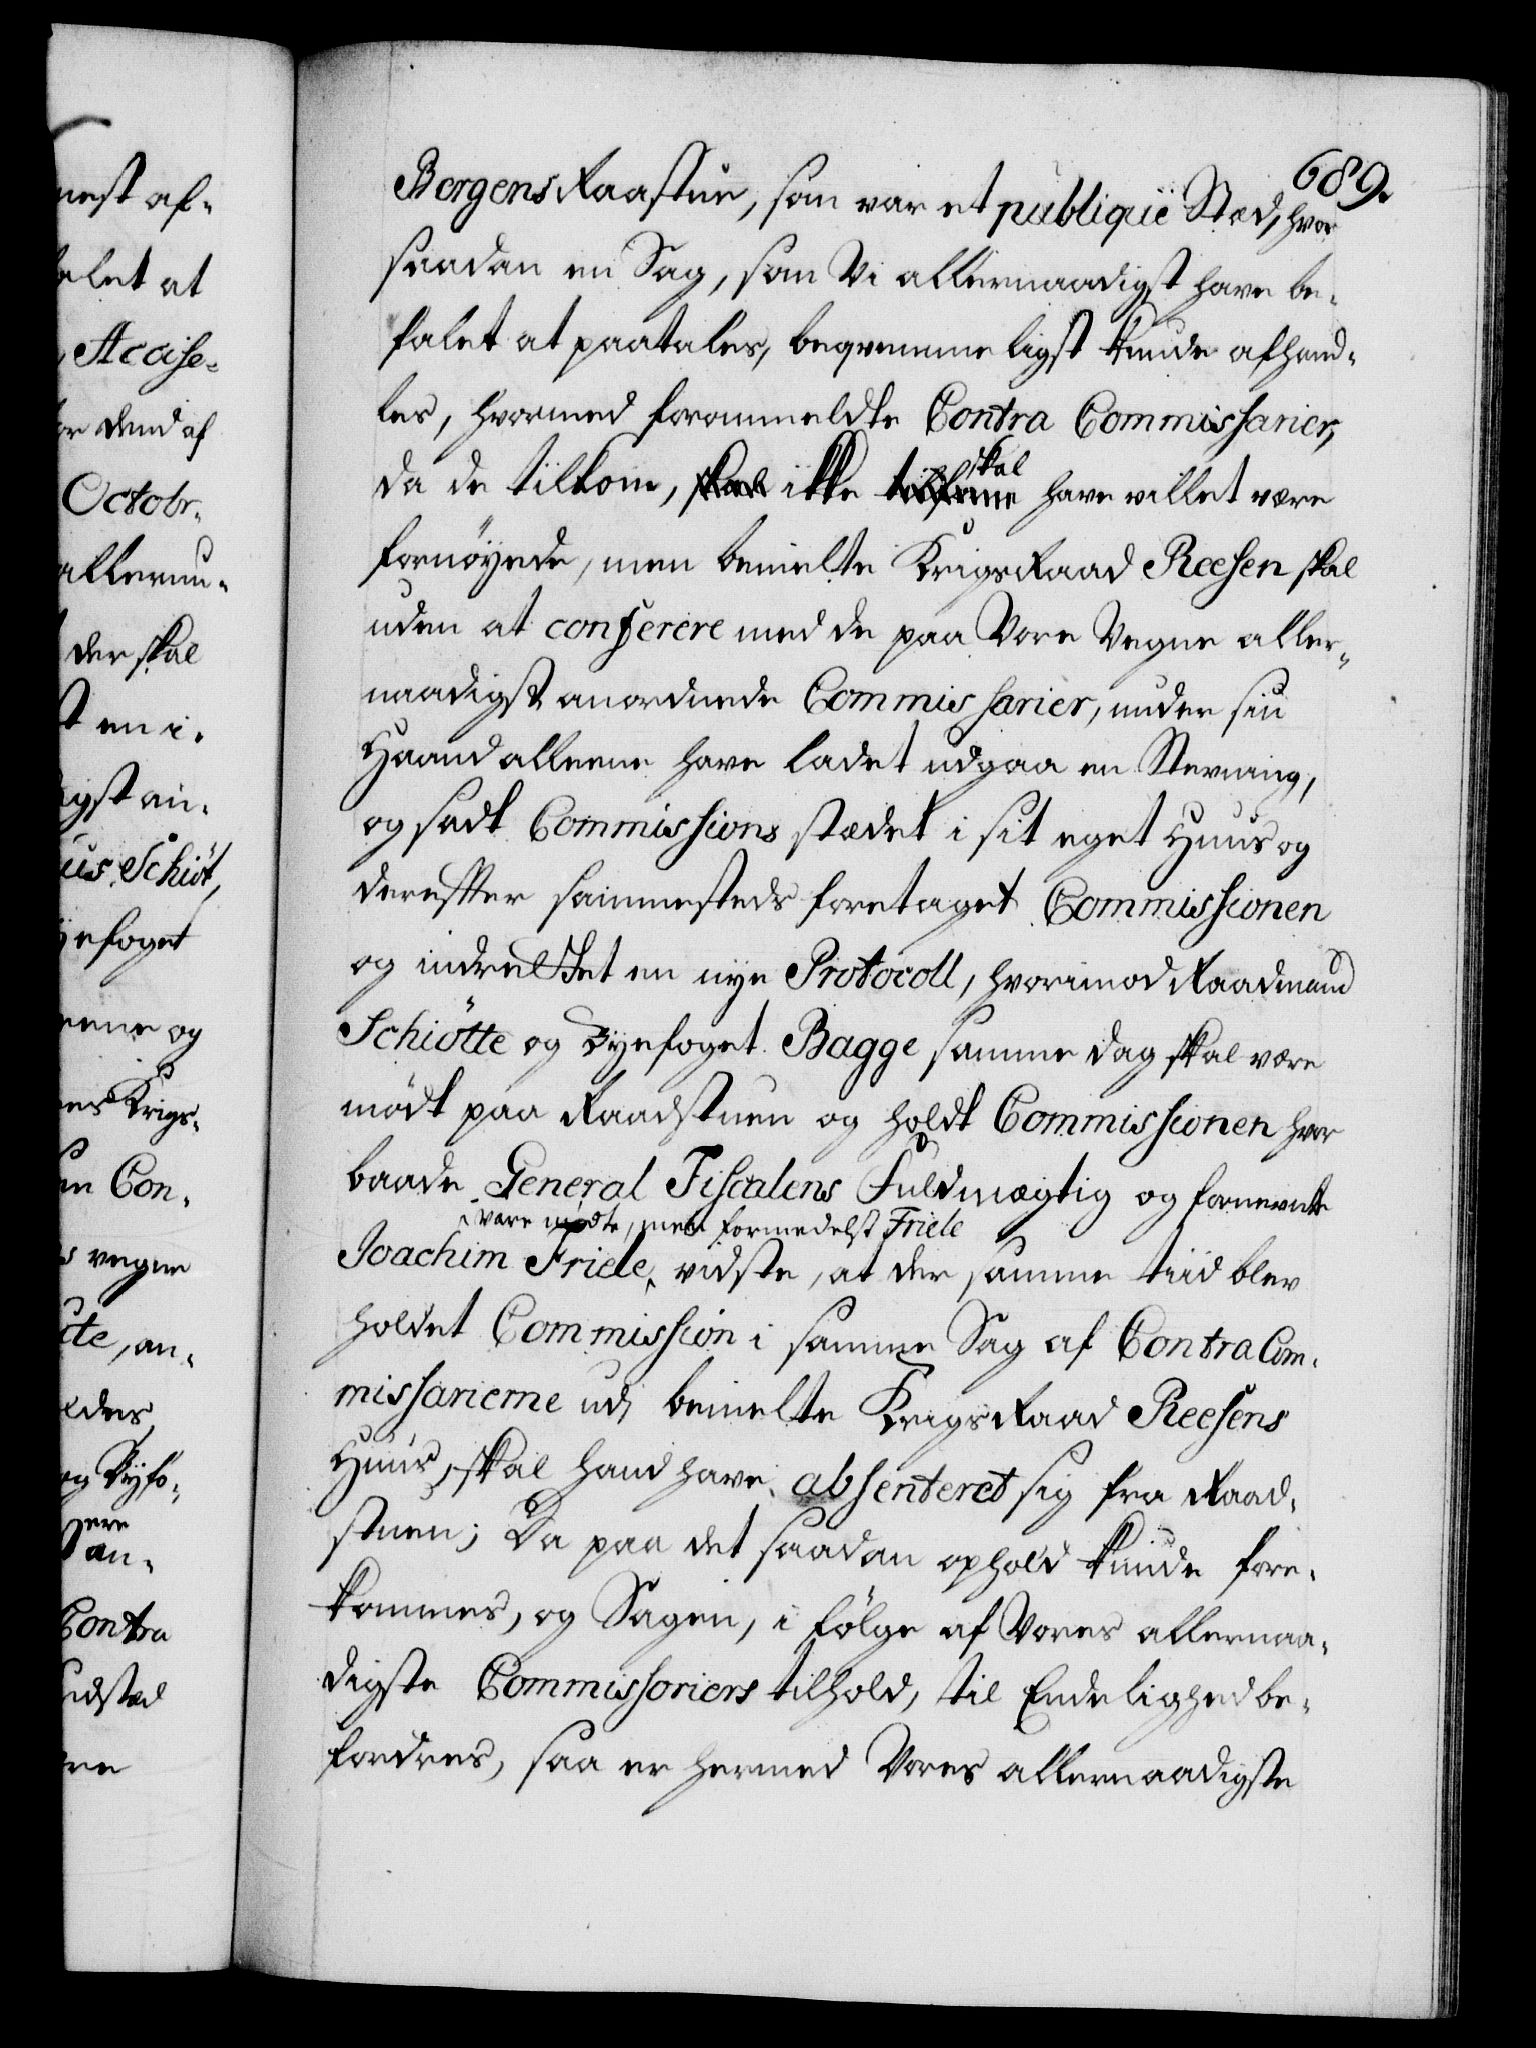 nest af-
alet at
, Accise-
or dend af
Octobr.
allerun-
der skal
st en i.
igst an-
us Schiöt,
yefoget
rene og
nes Krigs-
en Con-
s vegne
cte, an-
eldes,
og Byfo-
ere
an-
Contra
udstæd
re
689.
Bergens Raastue, som var et publiqve Stæd, hvor
saadan en Sag, som Vi allernaadigst have be-
falet at paatales, beqvemmeligst kunde afhand-
les, hvormed forommeldte Contra Commissarier,
skal
da de tilkom, skal ikke have villet være
fornöyede, men bemelte KrigsRaad Reesen skal
uden at conferere med de paa Vore Vegne aller-
naadigst anordnede Commissarier, under sin
Haand alleene have ladet udgaa en Stevning,
og sadt Commissions stædet i sit eget Huus og
derefter sammesteds foretaget Commissionen
og indrettet en nye Protocoll, hvorimod Raadmand
Schiötte og Byefoget Bagge samme dag skal være
mödt paa Raadstuen og holdt Commissionen hvor
baade General Fiscalens Fuldmægtig og fornevnte
vare mödte, men formedelst Friele
Joachim Friele, vidste, at der samme tiid blev
holdet Commission i samme Sag af Contra Com-
missarierne udi bemelte KrigsRaad Reesens
Huus, skal hand have absenteret sig fra Raad-
stuen; Da paa det saadan ophold kunde fore-
kommes, og Sagen, i fölge af Vores allernaa-
digste Commissoriers tilhold, til Endelighed be-
fordres, saa er hermed Vores allernaadigste